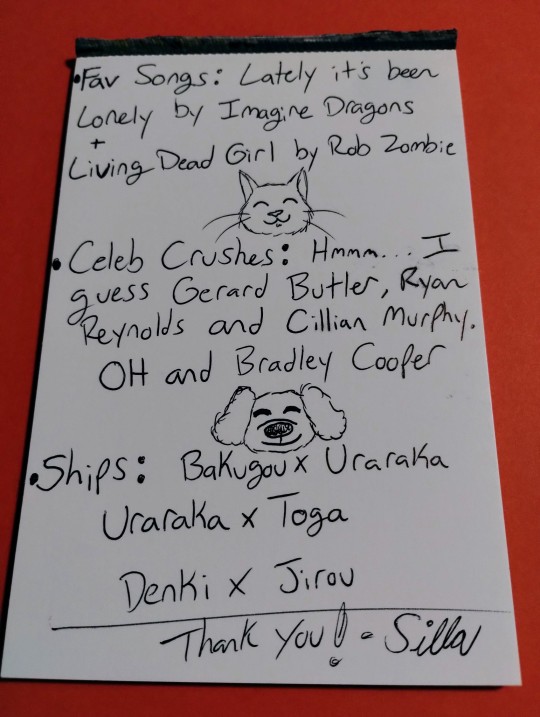 •Fav Songs: Lately it's been
Lonely by Imagine Dragons
+
Living Dead Girl by Rob Zombie
• Celeb Crushes: Hmmm... I
guess Gerard Butler, Ryan
Reynolds and Cillian Murphy.
OH and Bradley Cooper
•Ships: Bakugou x Uraraka
Uraraka x Toga
Denki x Jirou
Thank You! - Silla